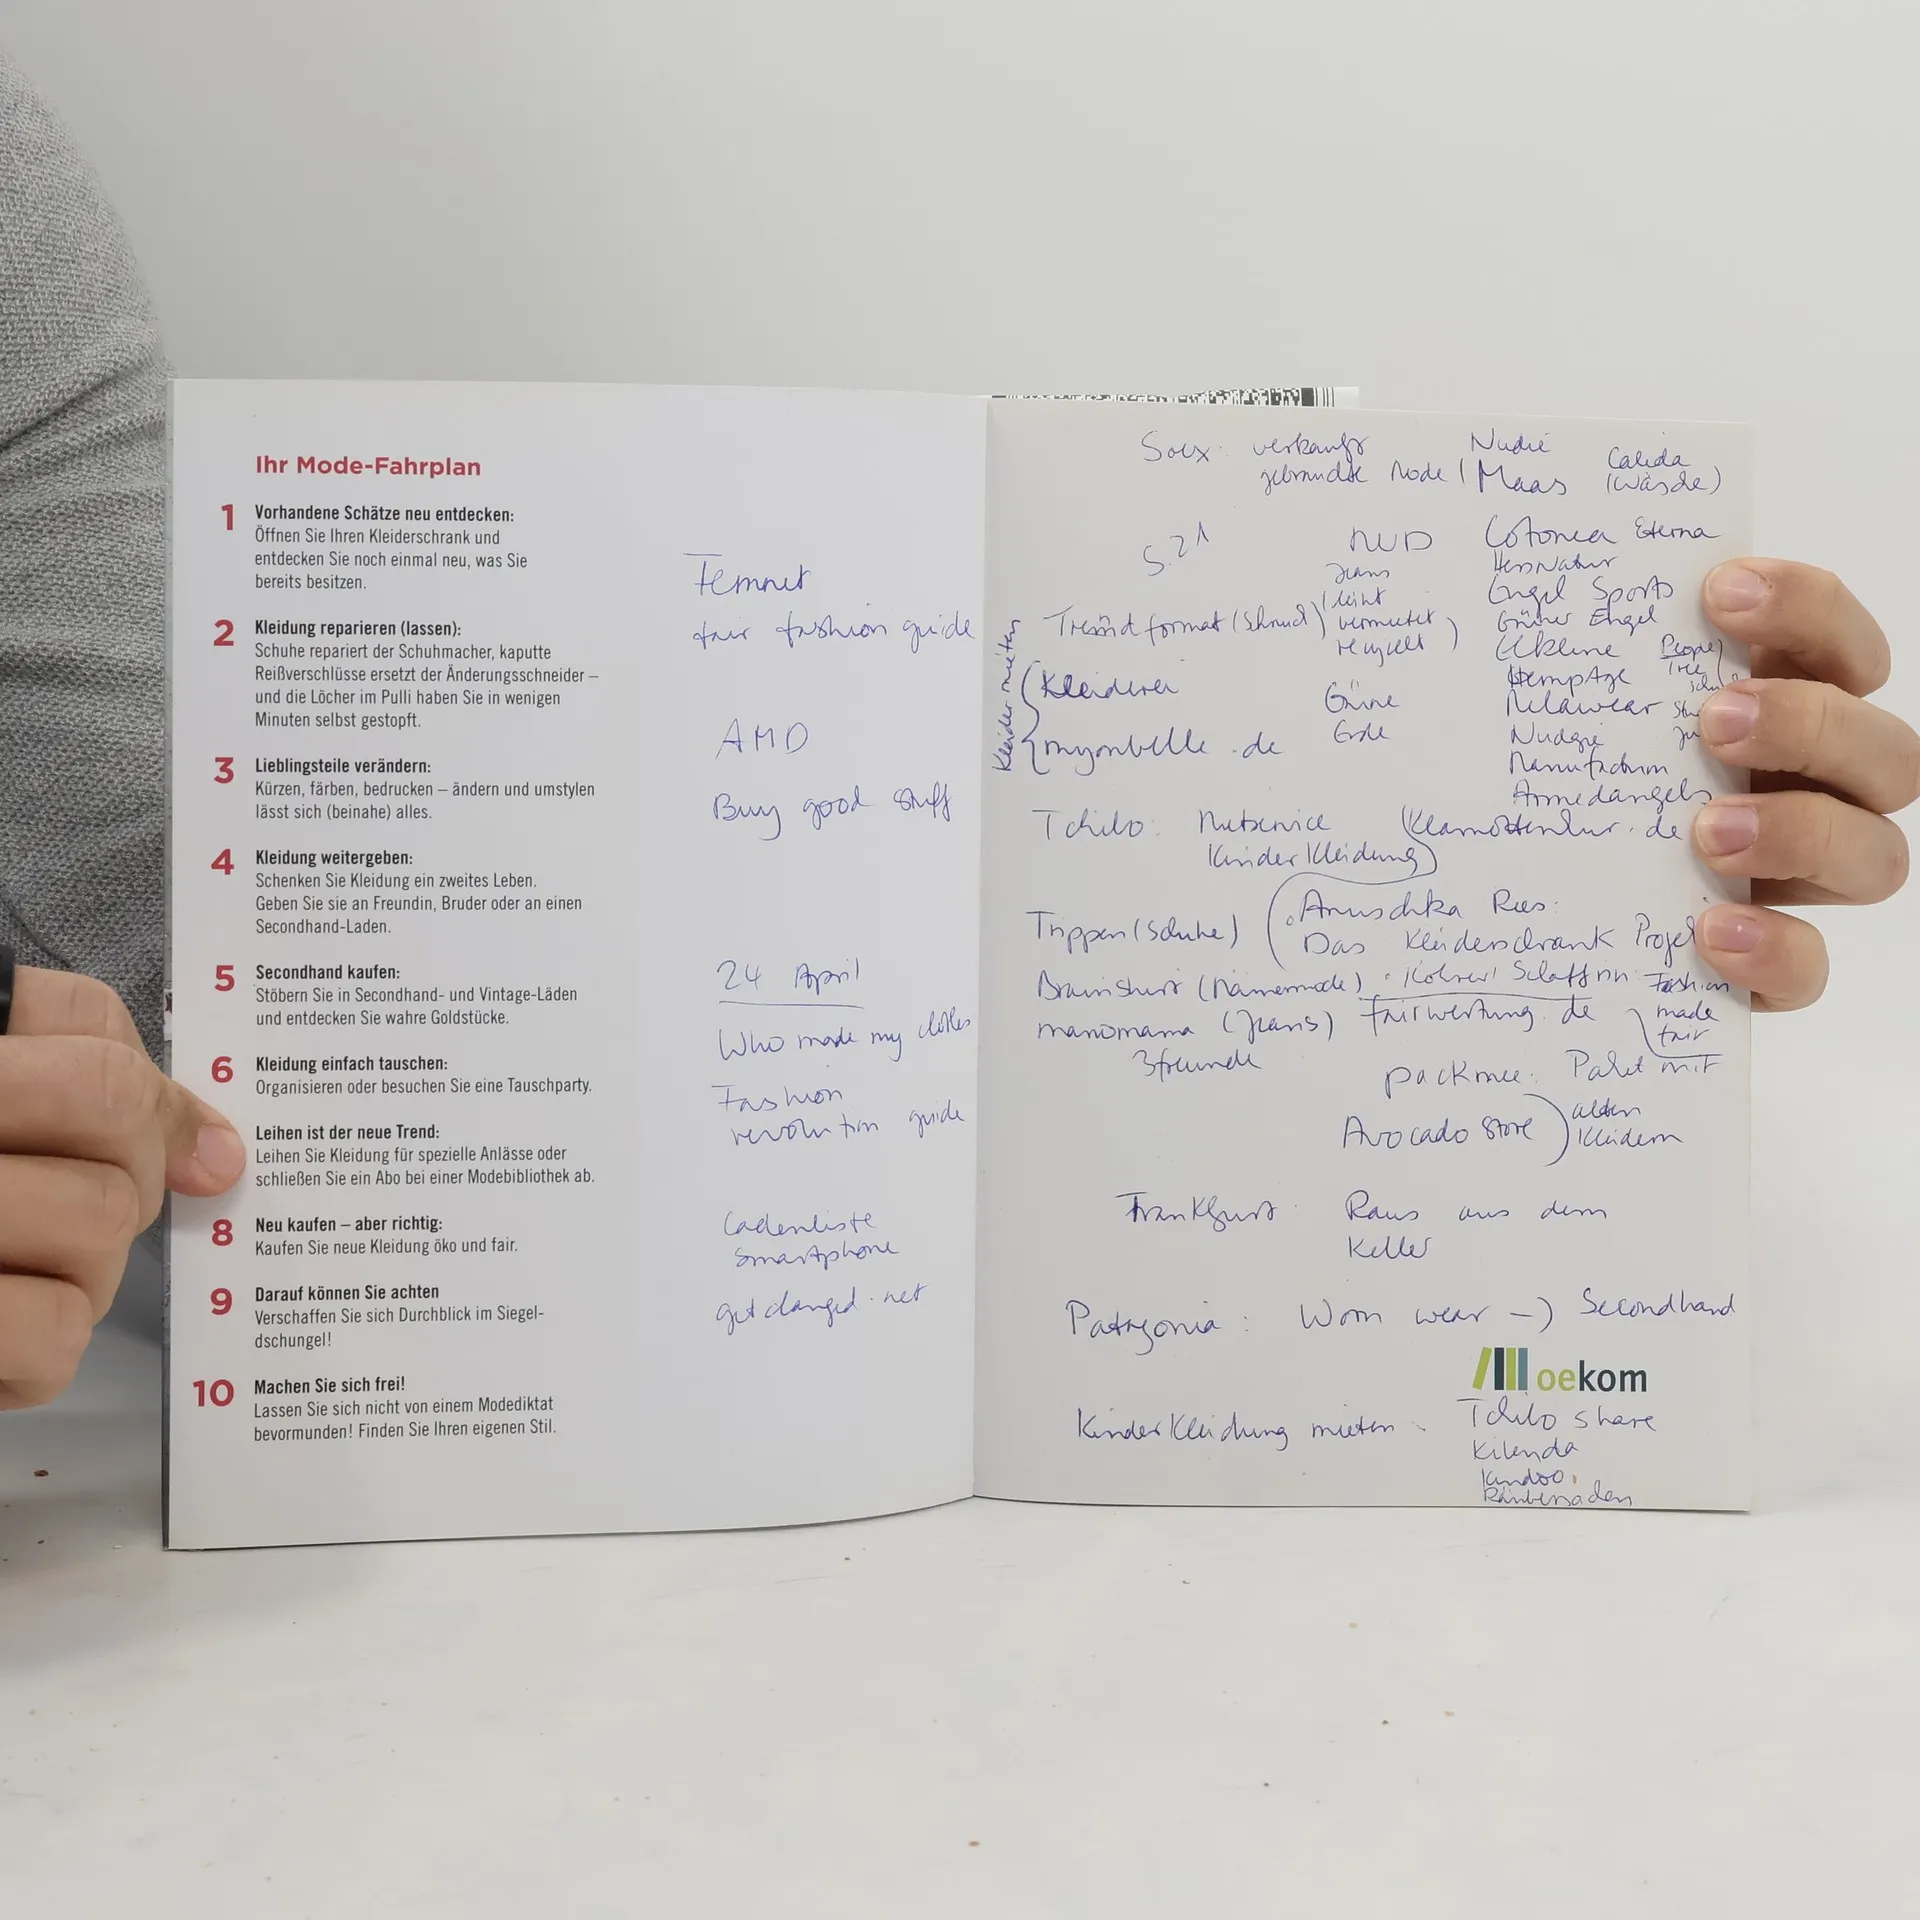 Ihr Mode-Fahrplan
1 Vorhandene Schätze neu entdecken:
Öffnen Sie Ihren Kleiderschrank und
entdecken Sie noch einmal neu, was Sie
bereits besitzen.
2 Kleidung reparieren (lassen):
Schuhe repariert der Schuhmacher, kaputte
Reißverschlüsse ersetzt der Änderungsschneider –
und die Löcher im Pulli haben Sie in wenigen
Minuten selbst gestopft.
3 Lieblingsteile verändern:
Kürzen, färben, bedrucken – ändern und umstylen
lässt sich (beinahe) alles.
4 Kleidung weitergeben:
Schenken Sie Kleidung ein zweites Leben.
Geben Sie sie an Freundin, Bruder oder an einen
Secondhand-Laden.
5 Secondhand kaufen:
Stöbern Sie in Secondhand- und Vintage-Läden
und entdecken Sie wahre Goldstücke.
6 Kleidung einfach tauschen:
Organisieren oder besuchen Sie eine Tauschparty.
Leihen ist der neue Trend:
Leihen Sie Kleidung für spezielle Anlässe oder
schließen Sie ein Abo bei einer Modebibliothek ab.
8 Neu kaufen – aber richtig:
Kaufen Sie neue Kleidung öko und fair.
9 Darauf können Sie achten
Verschaffen Sie sich Durchblick im Siegel-
dschungel!
10 Machen Sie sich frei!
Lassen Sie sich nicht von einem Modediktat
bevormunden! Finden Sie Ihren eigenen Stil.
Femnet
fair fashion guide
AMD
Buy good stuff
24 April
Who made my clothes
Fashion
revolution guide
Ladenliste
Smartphone
getchanged.net
Soex: verkauft
gebrauchte Mode
Nudie
Maas
Calida
(Wäsche)
S. 21
MUD
Jeans
leiht
vermietet
recycelt
Cotonea Eterna
HessNatur
Engel Sports
Grüner Engel
Elkline
HempAge
Melawear
Manufactum
Armedangels
People
Tree
Trendformat
Kleider mieten
Kleiderei
myonbelle.de
Grüne
Erde
Tchibo: Mietservice
Kinderkleidung
Trippen (Schuhe)
Anuschka Rees:
Das Kleiderschrank Projekt
Brainshirt (Männermode)
Fashion
made
fair
manomama (Jeans) fairwertung.de
3freunde
packmee: Paket mit
alten
Kleidern
Avocado Store
Frankfurt: Raus aus dem
Keller
Patagonia: Worn wear -> Secondhand
oekom
Kinderkleidung mieten: Tchibo share
Kilenda
Kindoo
Räubersachen